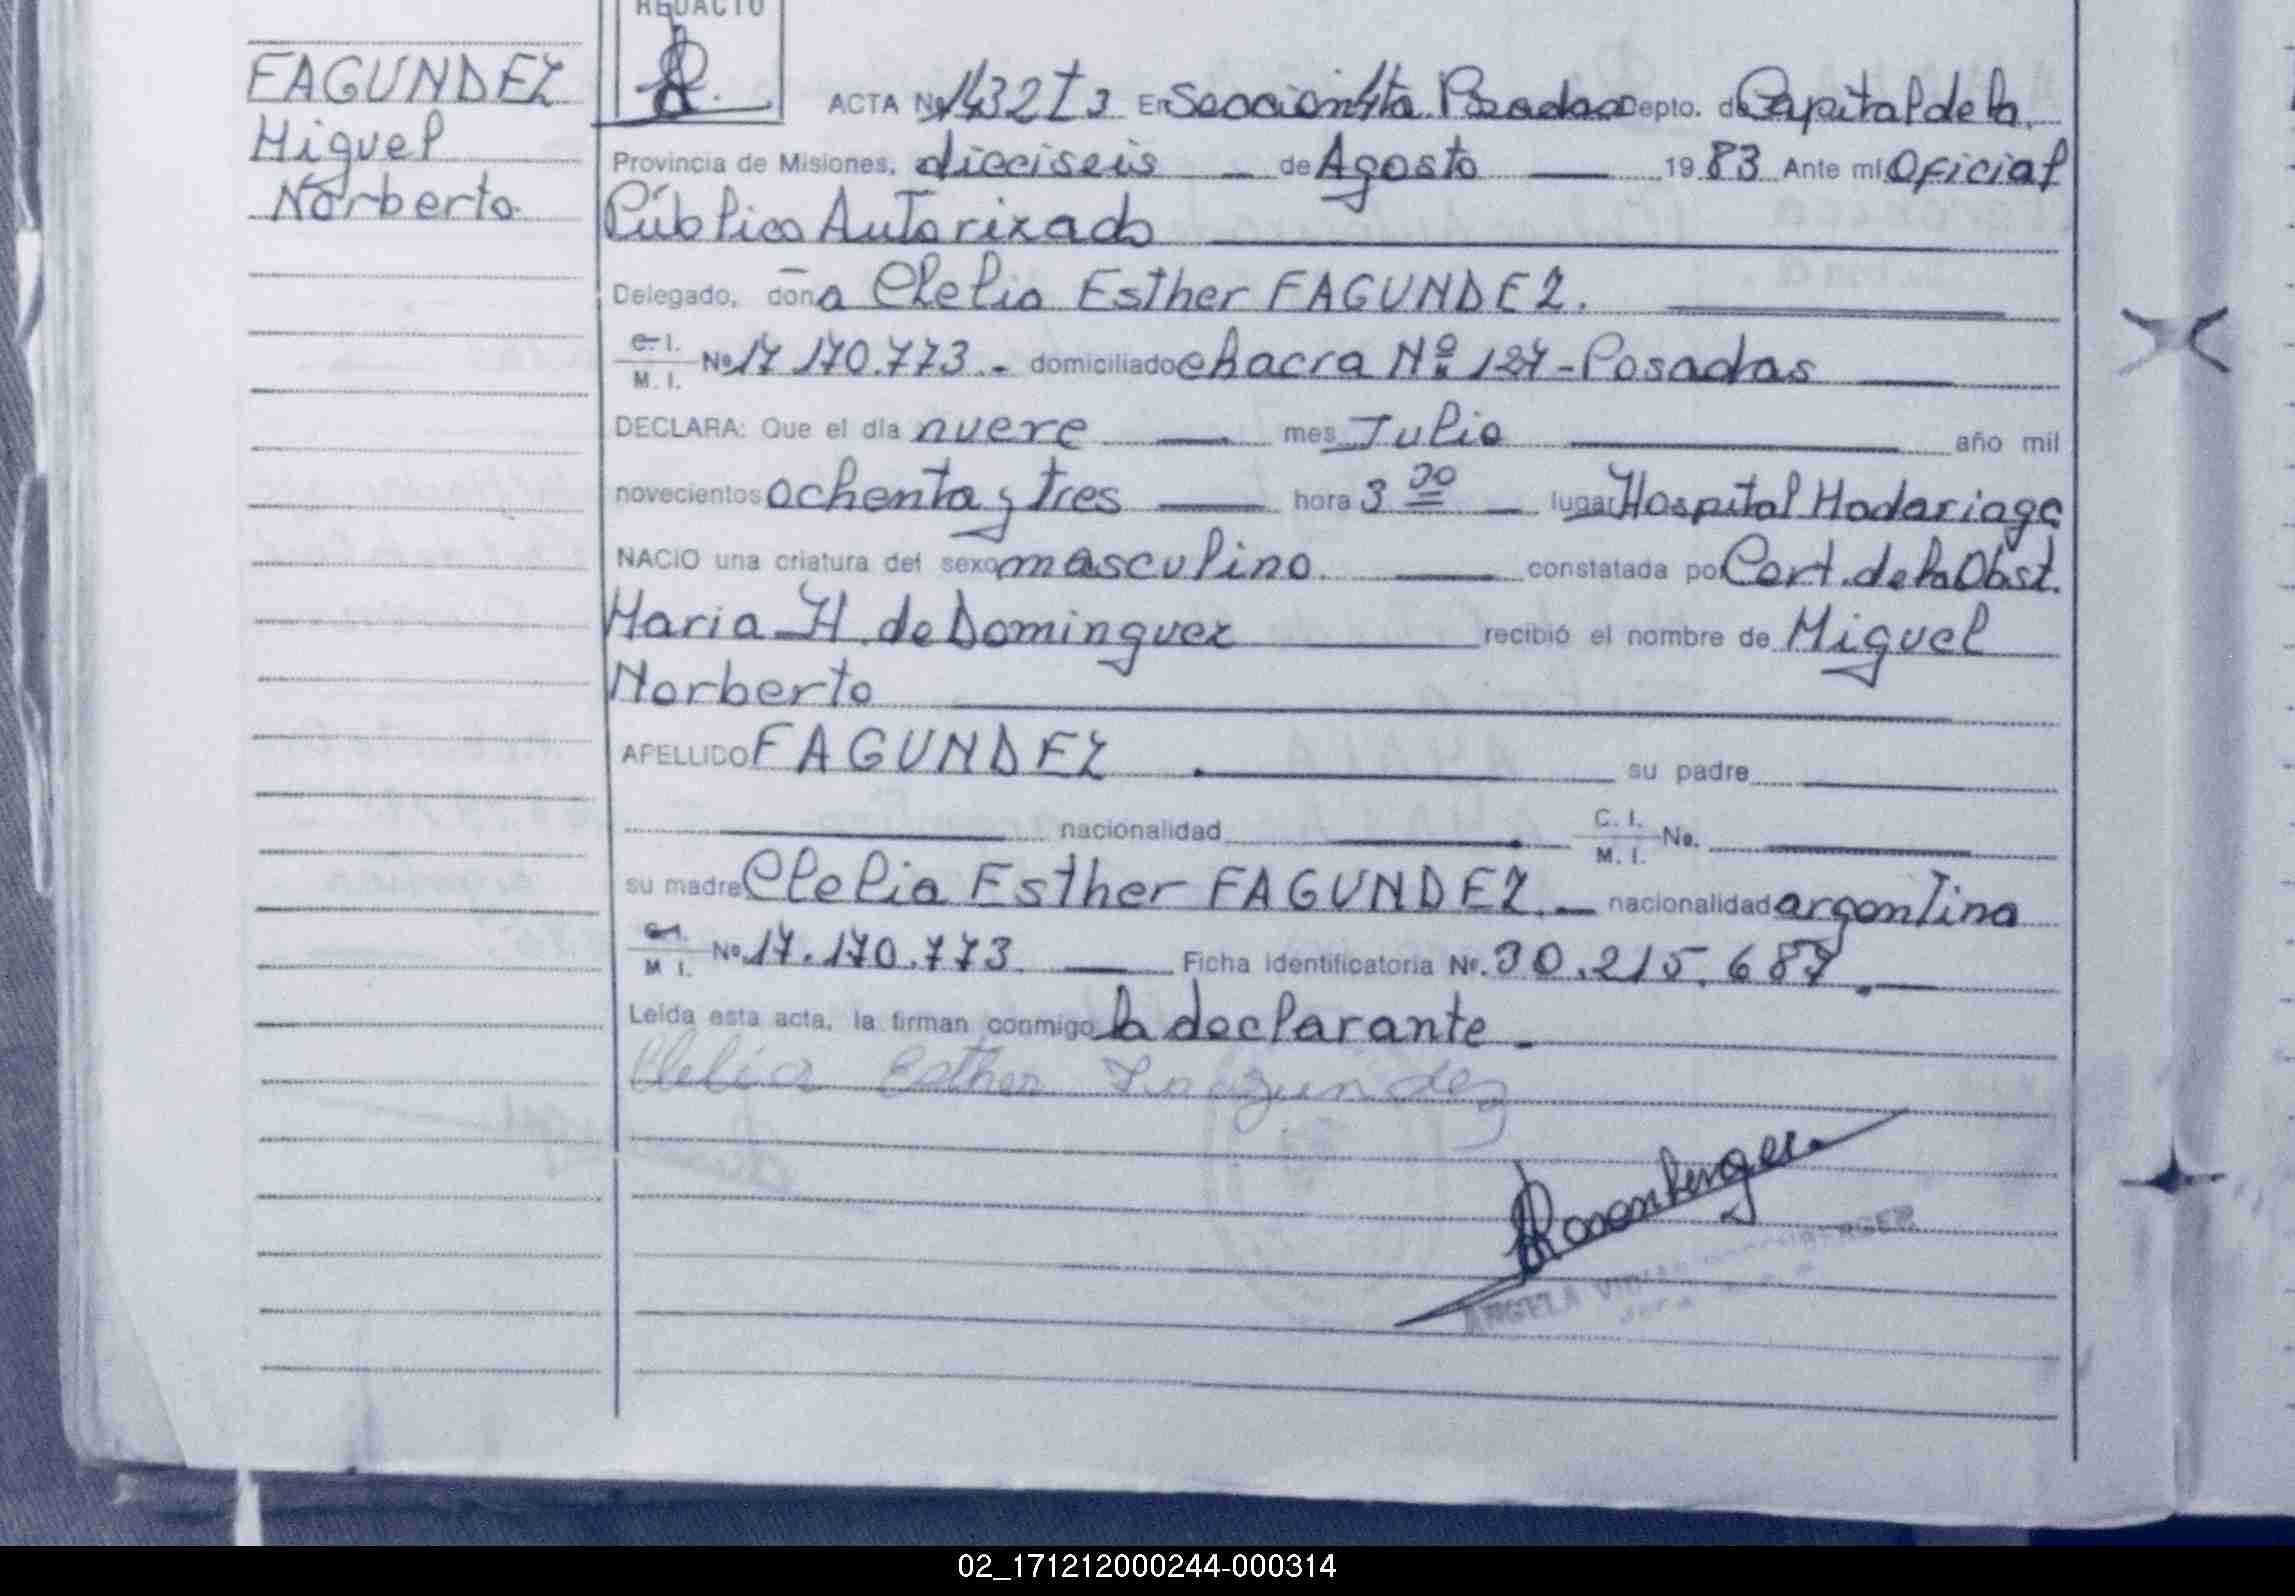 REDACTO
FAGUNDEZ
Miguel
Norberto
ACTA Nº 1432 T 3 En Sección 4ta Posadas Depto. de Capital de la
Provincia de Misiones, dieciseis de Agosto 1983 Ante mi Oficial
Público Autorizado
Delegado, doña Clelia Esther FAGUNDEZ.
C. I.
M. I. Nº 17 170.773.- domiciliado chacra Nº 127-Posadas
DECLARA: Que el día nueve mes Julio año mil
novecientos ochenta y tres hora 3 30 lugar Hospital Madariaga
NACIO una criatura del sexo masculino. constatada por Cert. de la Obst.
Maria H. de Dominguez recibió el nombre de Miguel
Norberto
APELLIDO FAGUNDEZ su padre
nacionalidad C. I.
M. I. No.
su madre Clelia Esther FAGUNDEZ. nacionalidad argentina
M I. No. 17.170.773 Ficha identificatoria Nº. 30.215.687.
Leída esta acta, la firman conmigo la declarante.
Clelia Esther Fagundez
Rosenberger
ANGELA
02_171212000244-000314